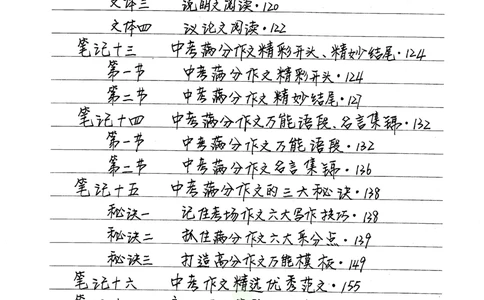 文体三 说明文阅读·120
文体四 议论文阅读·122
笔记十三 中考满分作文精彩开头、精妙结尾·124
第一节 中考满分作文精彩开头·124
第二节 中考满分作文精妙结尾·127
笔记十四 中考满分作文万能语段、名言集锦·132
第一节 中考满分作文万能语段·132
第二节 中考满分作文名言集锦·136
笔记十五 中考满分作文的三大秘诀·138
秘诀一 记住考场作文六大写作技巧·138
秘诀二 抓住满分作文六大采分点·139
秘诀三 打造高分作文万能模板·149
笔记十六 中考作文精选优秀范文·155